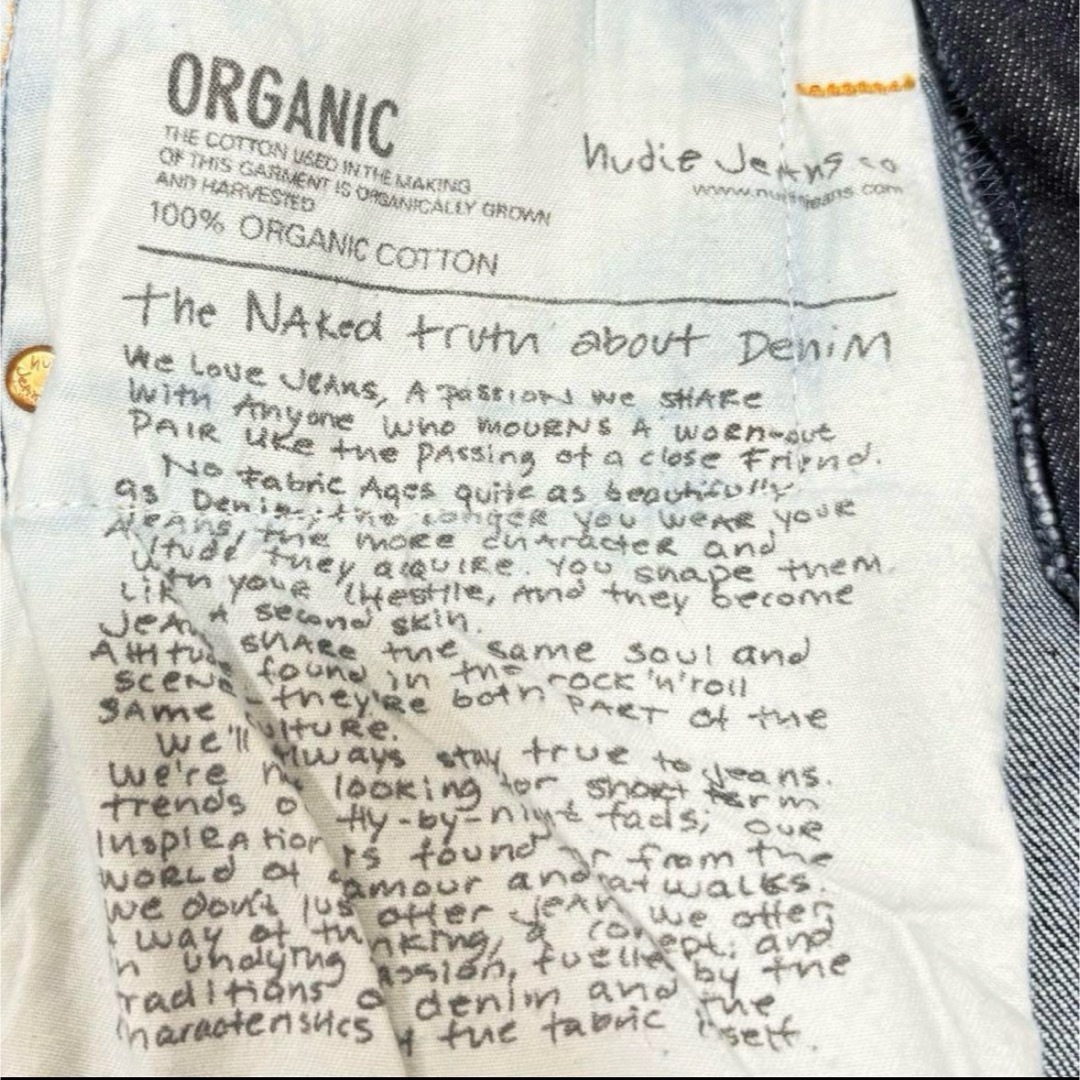 ORGANIC
THE COTTON USED IN THE MAKING
OF THIS GARMENT IS ORGANICALLY GROWN
AND HARVESTED
100% ORGANIC COTTON
Nudie Jeans co
www.nudiejeans.com
The NAKed truth about DeniM
We Love JEANS, A passion we SHARe
With Anyone who MOURNS A worn-out
PAIR LiKe the PAssing of a close Friend.
No Fabric Ages quite as beautifully
as Denim; the longer you weAR your
JeANS, the more chARacter and
they acquire. You shape them
with your lifestile, and they become
LiK A second skin.
JeAn SHARe the same soul and
Attitud found in the rock 'n' roll
scene they're both PART of the
SAMe culture.
we'll Always stay true to jeans.
we're no looking for short term
trends o fly-by-night fads; our
InspiRAtion is found far from the
WORLD of glamour and catwalks.
we don't jus offer jean we offer
way of thinking, a concept; and
undying passion, fuelled by the
traditions o denim and the
characteristics of the fabric itself.